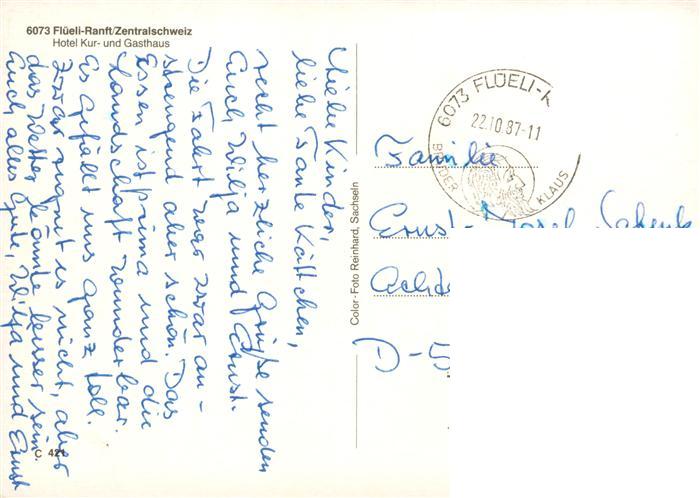 6073 Flüeli-Ranft/Zentralschweiz
Hotel Kur- und Gasthaus
Liebe Kinder,
liebe Tante Kättchen,
recht herzliche Grüße senden
Euch Wilja und Ernst.
Die Fahrt war zwar an-
strengend aber schön. Das
Essen ist prima und die
Landschaft wunderbar.
Es gefällt uns ganz toll.
Zwar regnet es nicht, aber
das Wetter könnte besser sein.
Euch alles Gute, Wilja und Ernst
C 421
Color-Foto Reinhard, Sachseln
6073 FLÜELI-
22.10.87-11
BRUDER KLAUS
Familie
Ernst-Josef Schenk
D-5